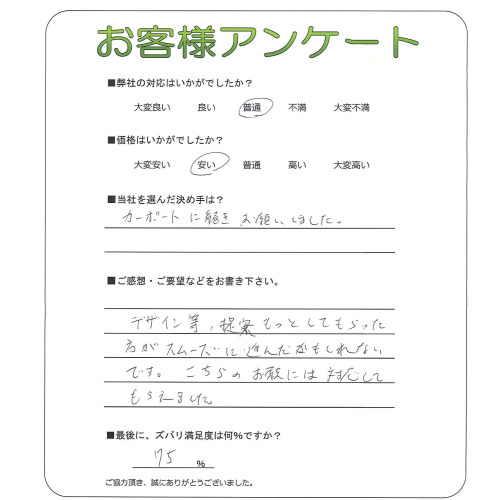 お客様アンケート
■弊社の対応はいかがでしたか？
大変良い 良い 普通 不満 大変不満
■価格はいかがでしたか？
大変安い 安い 普通 高い 大変高い
■当社を選んだ決め手は？
カーポートに続きお願いしました。
■ご感想・ご要望などをお書き下さい。
デザイン等，提案もっとしてもらった
方がスムーズに進んだかもしれない
です。こちらのお願には対応して
もらえました
■最後に、ズバリ満足度は何%ですか？
75 %
ご協力頂き、誠にありがとうございました。